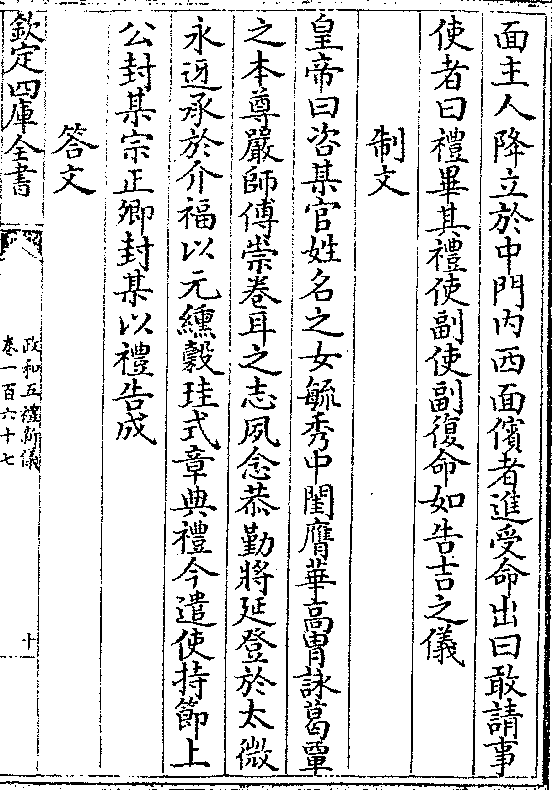 面主人降立於中門内西面儐者進受命出曰敢請事
使者曰禮畢其禮使副使副復命如告吉之儀
制文
皇帝曰咨某官姓名之女毓秀中閨膺華高胄詠葛覃
之本尊嚴師傅崇卷耳之志夙念恭勤將延登於太微
永迓承於介福以元纁穀珪式章典禮今遣使持節上
公封某宗正卿封某以禮告成
答文
欽定四庫全書
政和五禮新儀
卷一百六十七
十